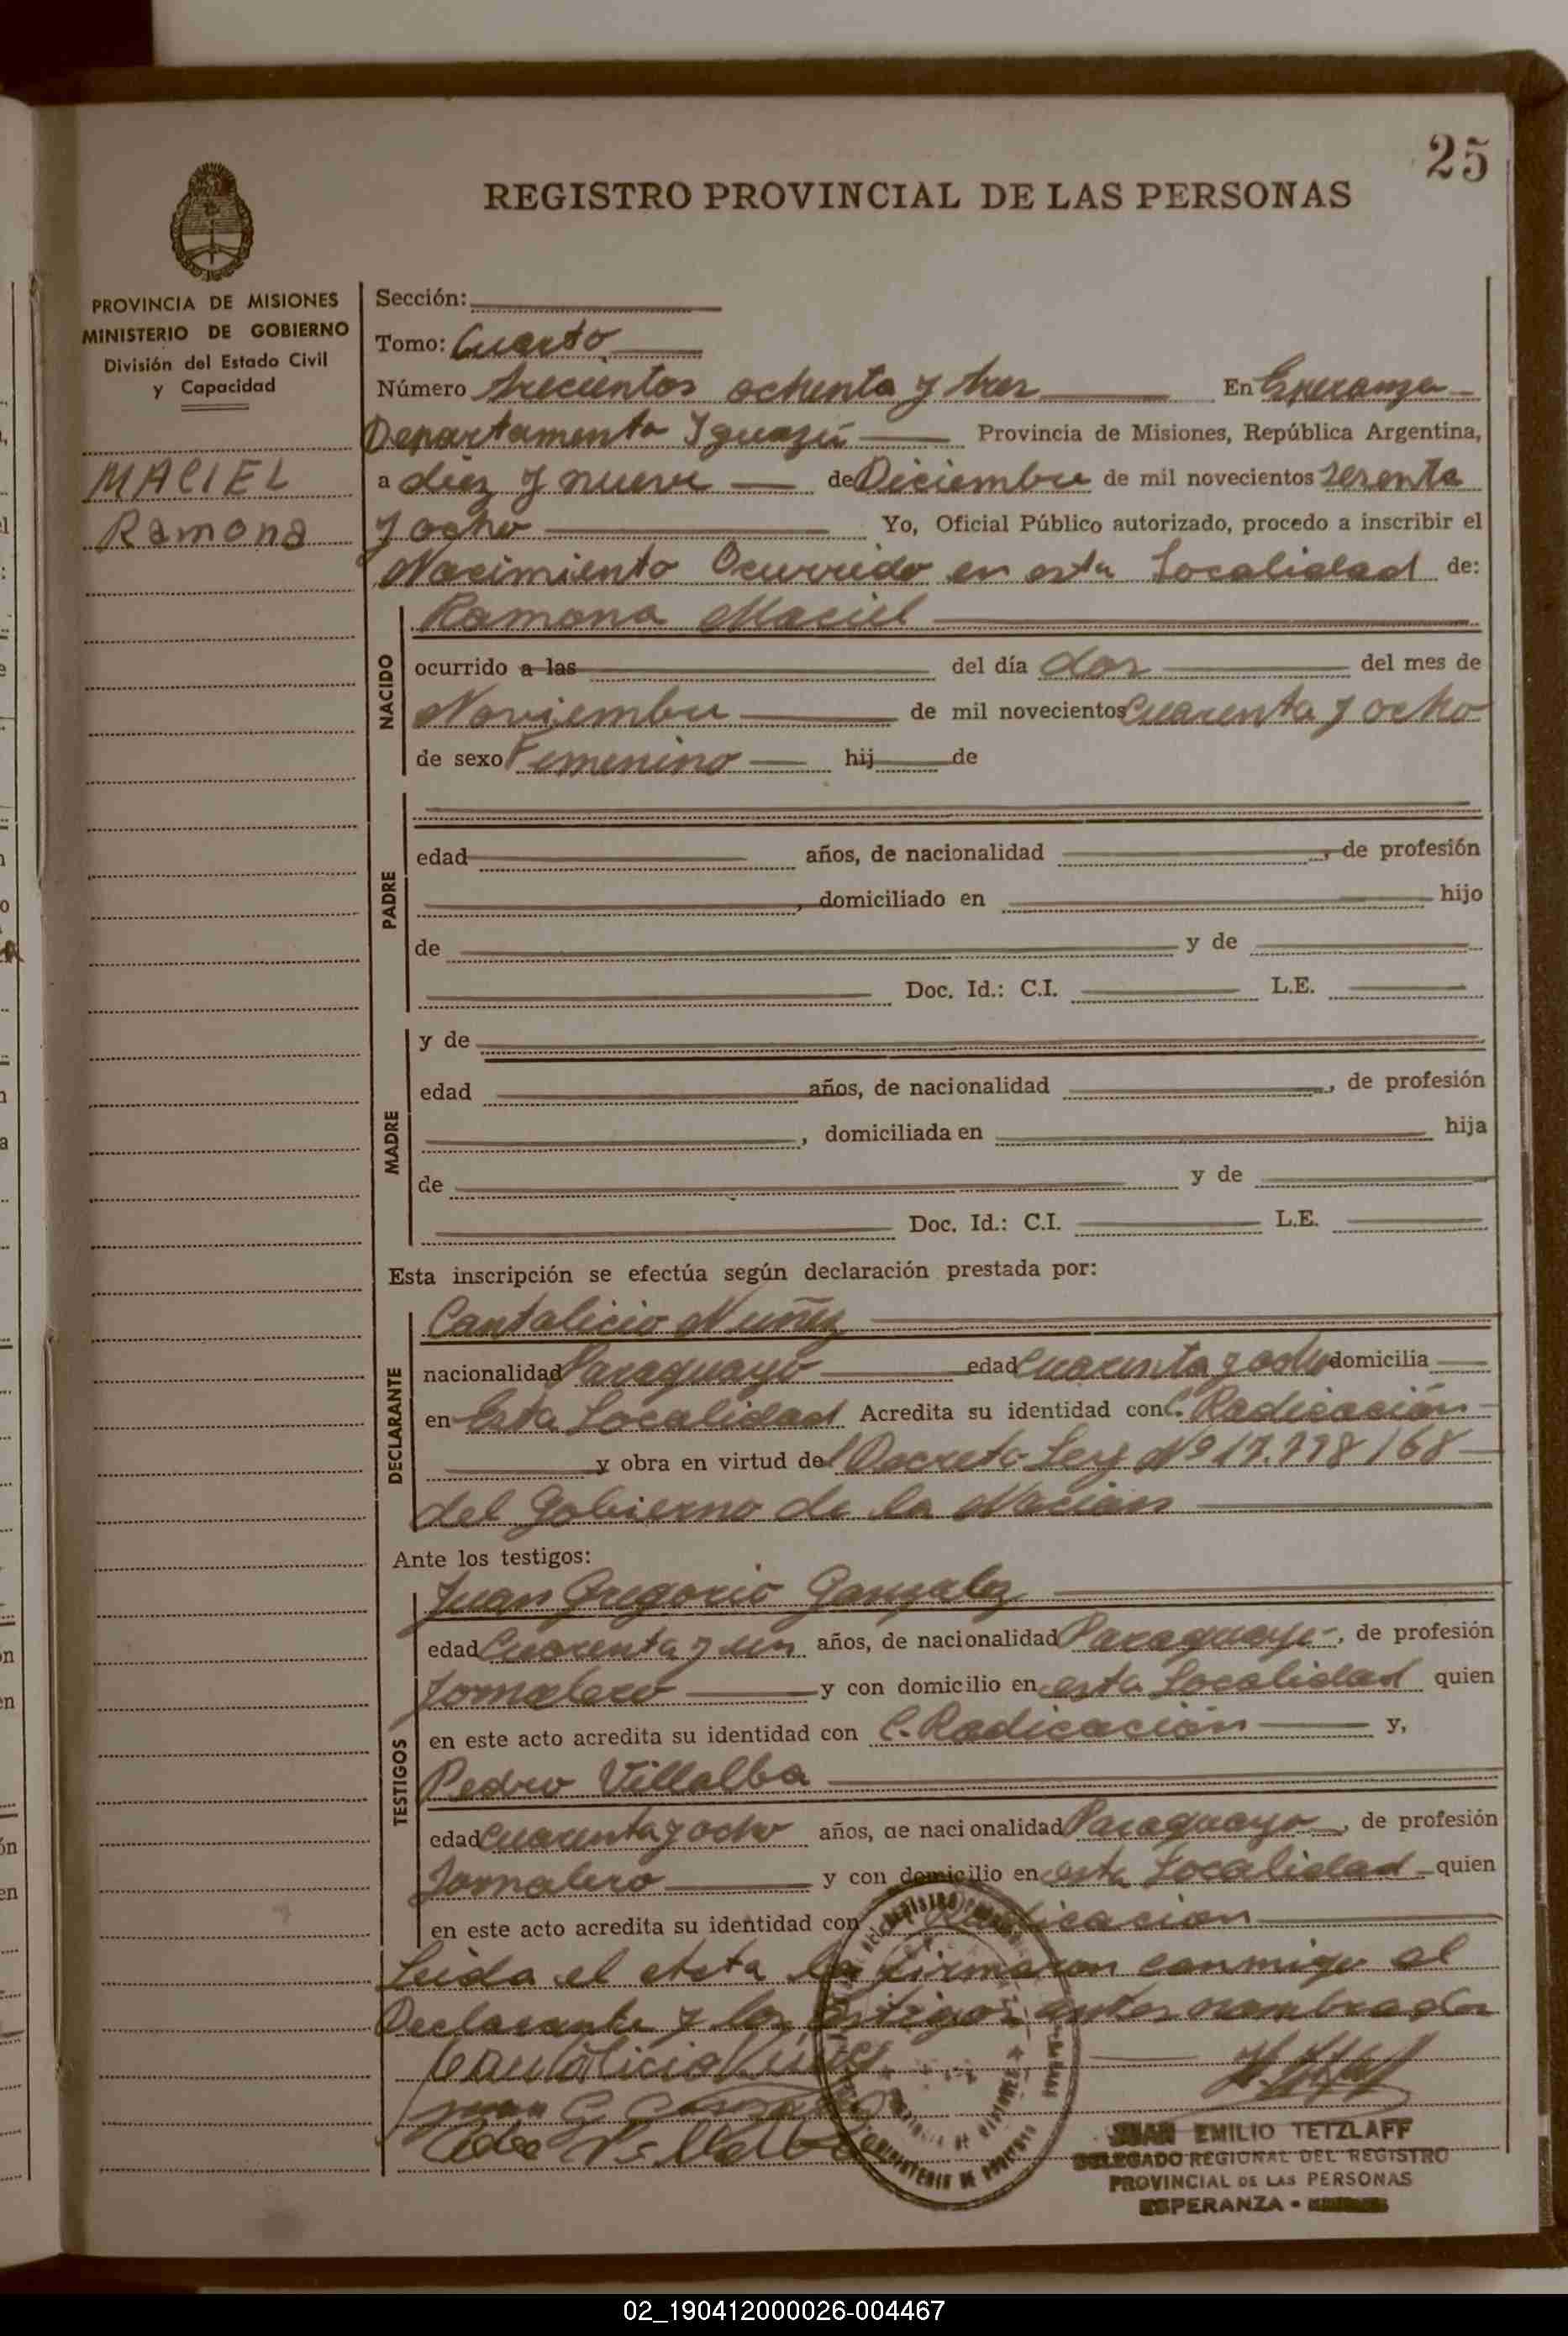 25
REGISTRO PROVINCIAL DE LAS PERSONAS
PROVINCIA DE MISIONES
MINISTERIO DE GOBIERNO
División del Estado Civil
y Capacidad
MACIEL
Ramona
Sección:
Tomo: Cuarto
Número trecientos ochenta y tres En Esperanza
Departamento Iguazú Provincia de Misiones, República Argentina,
a diez y nueve de Diciembre de mil novecientos sesenta
y ocho Yo, Oficial Público autorizado, procedo a inscribir el
Nacimiento Ocurrido en esta Localidad de:
NACIDO
Ramona Maciel
ocurrido a las del día dos del mes de
Noviembre de mil novecientos Cuarenta y ocho
de sexo Femenino hij de
PADRE
edad años, de nacionalidad , de profesión
, domiciliado en hijo
de y de
Doc. Id.: C.I. L.E.
MADRE
y de
edad años, de nacionalidad , de profesión
, domiciliada en hija
de y de
Doc. Id.: C.I. L.E.
Esta inscripción se efectúa según declaración prestada por:
DECLARANTE
Cantalicio Nuñez
nacionalidad Paraguayo edad Cuarenta y ocho domicilia
en Esta Localidad Acredita su identidad con C. Radicación
y obra en virtud del Decreto-Ley Nº 17.998/68
del Gobierno de la Nación
Ante los testigos:
TESTIGOS
Juan Gregorio Gonzalez
edad Cuarenta y un años, de nacionalidad Paraguayo, de profesión
Jornalero y con domicilio en esta Localidad quien
en este acto acredita su identidad con C. Radicación y,
Pedro Villalba
edad Cuarenta y ocho años, de nacionalidad Paraguayo, de profesión
Jornalero y con domicilio en esta Localidad quien
en este acto acredita su identidad con Radicación
Leida el Acta la firmaron conmigo el
Declarante y los testigos antes nombrados
Cantalicio Nuñez
Juan G Gonzalez
Pedro Villalba
JUAN EMILIO TETZLAFF
DELEGADO REGIONAL DEL REGISTRO
PROVINCIAL DE LAS PERSONAS
ESPERANZA -
02_190412000026-004467